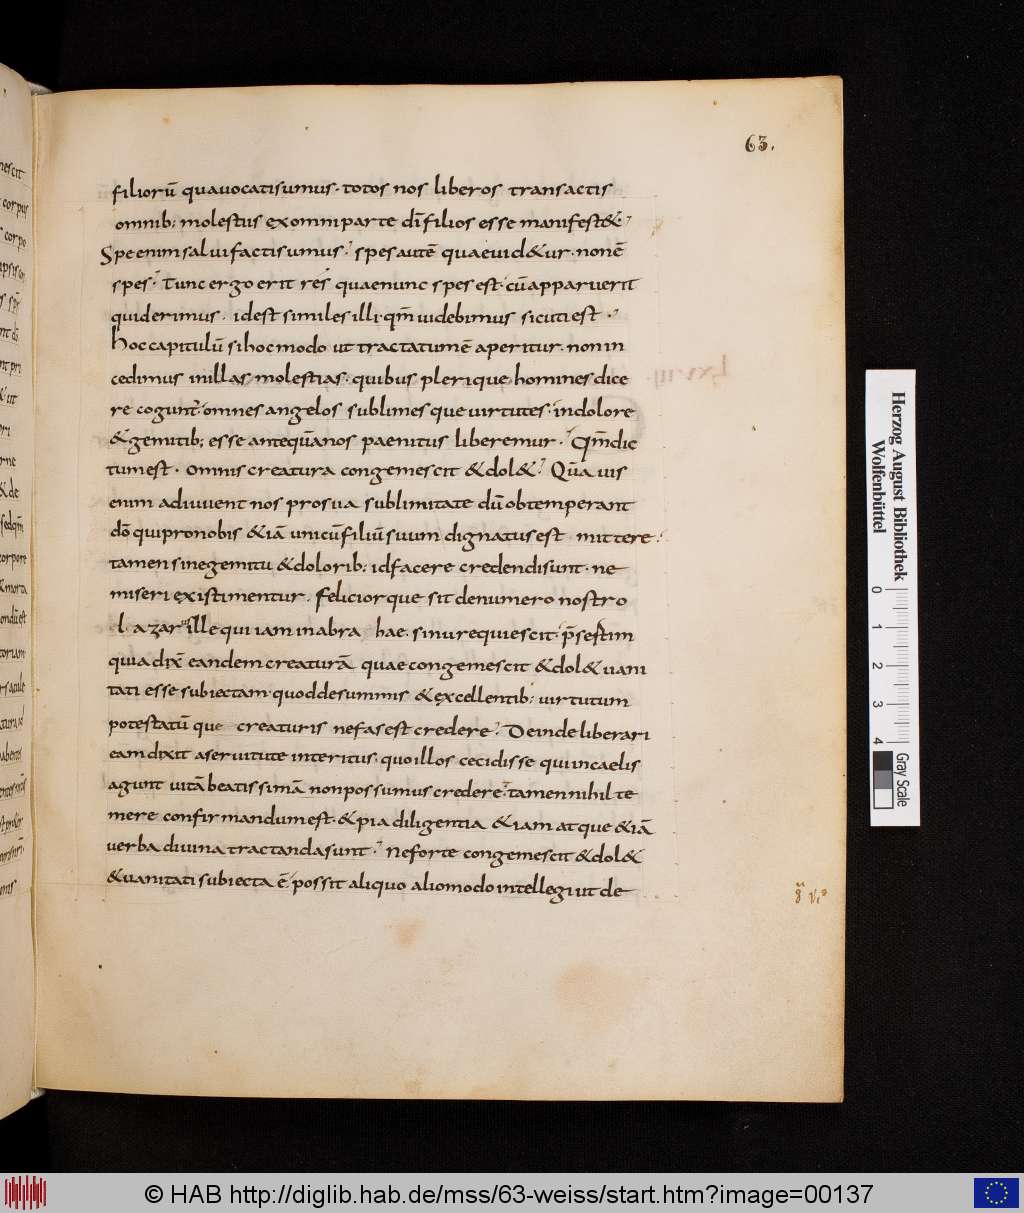 63.
filiorū quauocatisumus· totos nos liberos transactis
omnib; molestiis exomniparte dī filios esse manifest&·
Speenimsaluifactisumus· spes autē quaeuid&ur· nonē
spes· Tunc ergo erit res quaenunc spes est· cū apparuerit
quiderimus· idest similes illi· qm̄ uidebimus sicuti est·
hoc capitulū si hoc modo ut tractatumē aperitur· non in
cedimus inillas molestias· quibus plerique homines dice
re cogunt omnes angelos sublimesque uirtutes· indolore
& gemitib; esse antequā nos paenitus liberemur· Qm̄ dic
tum est· omnis creatura congemescit & dol&· Quā uis
enim adiuuent nos pro sua sublimitate dū obtemperant
dō qui pro nobis & iā unicū filiū suum dignatus est mittere
tamen sinegemitu & dolorib; id facere credendi sunt· ne
miseri existimentur· feliciorque sit denumero nostro
lazarus ille qui iam in abrahae· sinu requiescit· p̄sertim
quia dix̄ eandem creaturā quae congemescit & dol& uani
tati esse subiectam· quod de summis & excellentib; uirtutum
potestatū que creaturis nefas est credere· Deinde liberari
eam dixit a seruitute interitus· quo illos cecidisse qui in caelis
agunt uitā beatissimā non possumus credere· tamen nihil te
mere confirmandum est· & pia diligentia & iam atque & iā
uerba diuina tractanda sunt· ne forte congemescit & dol&
& uanitati subiecta ē possit aliquo alio modo intellegi ut de
Herzog August Bibliothek
Wolfenbüttel
0 1 2 3 4
Gray Scale
© HAB http://diglib.hab.de/mss/63-weiss/start.htm?image=00137